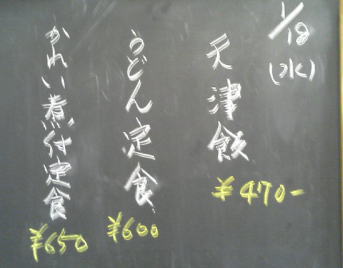 1/18
(水)
天津飯
¥470-
うどん定食
¥600
かれい煮付定食
¥650